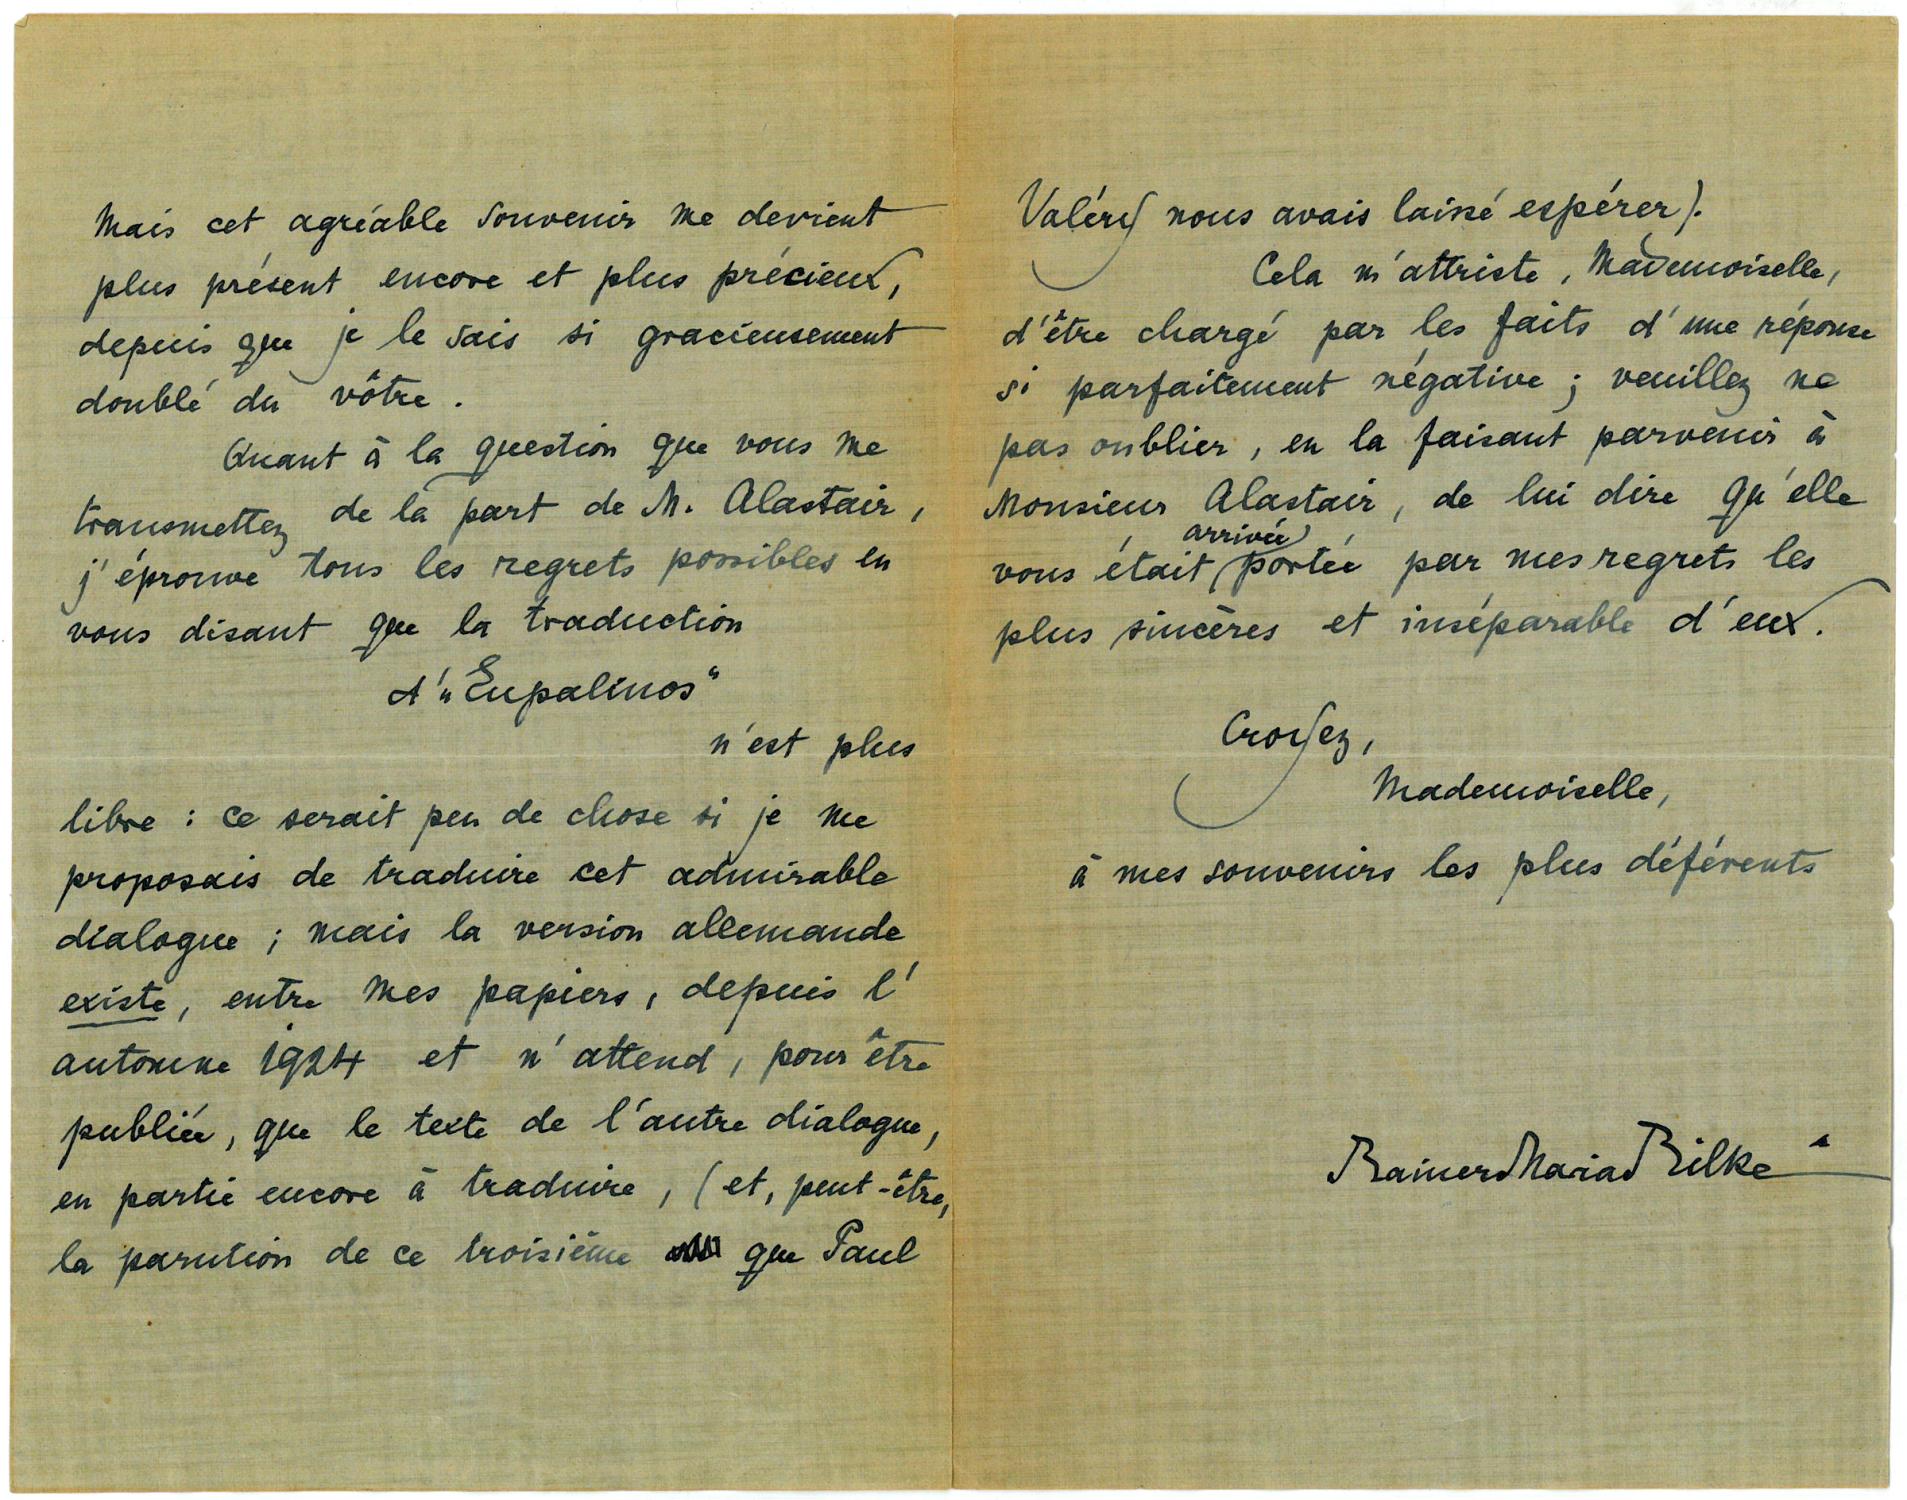 Mais cet agréable souvenir me devient
plus présent encore et plus précieux,
depuis que je le sais si gracieusement
doublé du vôtre.
Quant à la question que vous me
transmettez de la part de M. Alastair,
j'éprouve tous les regrets possibles en
vous disant que la traduction
d'„Eupalinos“
n'est plus
libre : ce serait peu de chose si je me
proposais de traduire cet admirable
dialogue ; mais la version allemande
existe, entre mes papiers, depuis l'
automne 1924 et n'attend, pour être
publiée, que le texte de l'autre dialogue,
en partie encore à traduire, (et, peut-être,
la parution de ce troisième que Paul
Valéry nous avais laissé espérer).
Cela m'attriste, Mademoiselle,
d'être chargé par les faits d'une réponse
si parfaitement négative ; veuillez ne
pas oublier, en la faisant parvenir à
Monsieur Alastair, de lui dire qu'elle
arrivée
vous était portée par mes regrets les
plus sincères et inséparable d'eux.
Croyez,
Mademoiselle,
à mes souvenirs les plus déférents
Rainer Maria Rilke